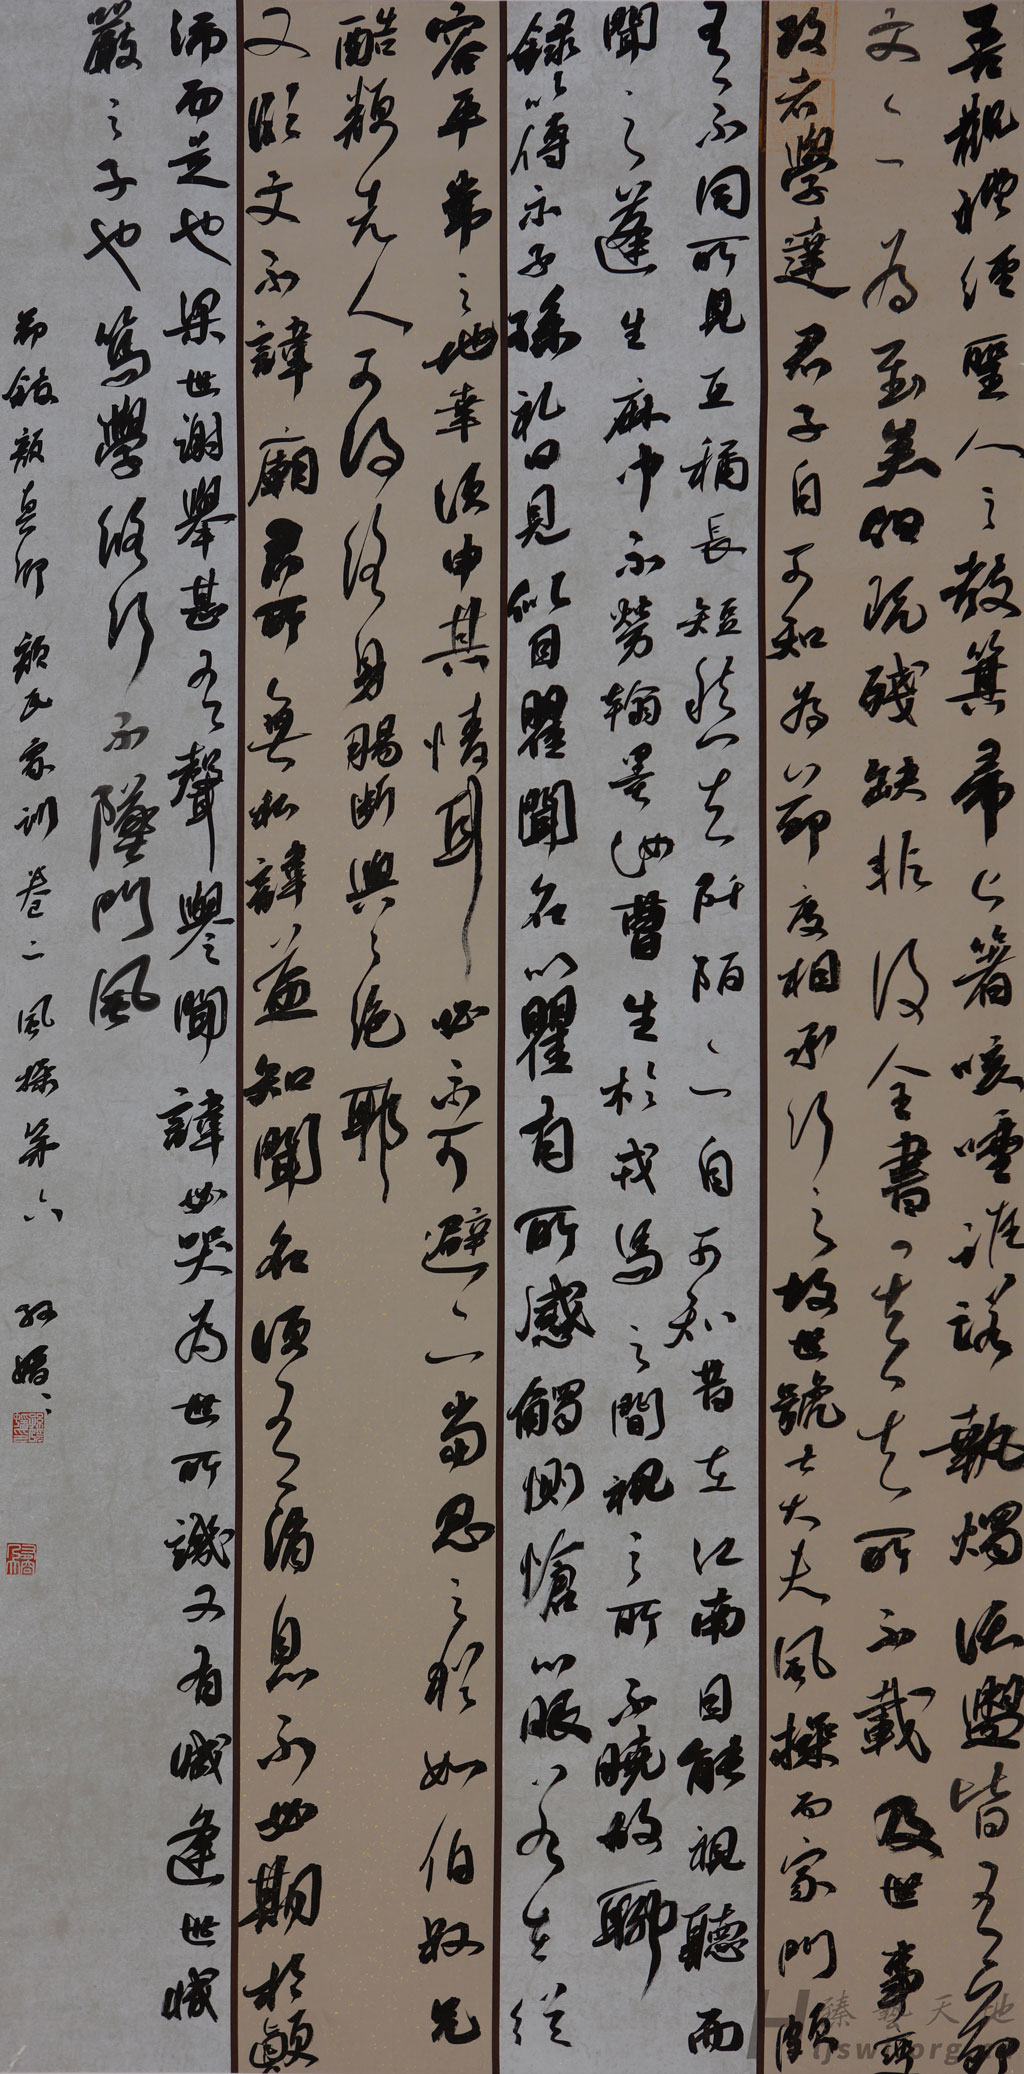 吾觀禮經聖人之教箕帚匕箸咳唾唯諾執燭沃盥皆有節
文亦為至矣但既殘缺非復全書其有所不載及世事變
改者學達君子自為節度相承行之故世號士大夫風操而家門頗
有不同所見互稱長短然其阡陌亦自可知昔在江南目能視聽而
聞之蓬生麻中不勞翰墨汝曹生於戎馬之間視之所不曉故聊
錄以傳示子孫禮曰見似目瞿聞名心瞿有所感觸惻愴心眼若在從
容平常之地幸須申其情耳必不可避亦當忍之猶如伯叔兄
酷類先人可得終身腸斷與之絕耶
又臨文不諱廟君所無私諱益知聞名須有消息不必期於顛
沛而走也梁世謝舉甚有聲譽聞諱必哭為世所譏又有臧逢世臧
嚴之子也篤學修行不墜門風
顏氏家訓卷二風操第六
臻藝天地